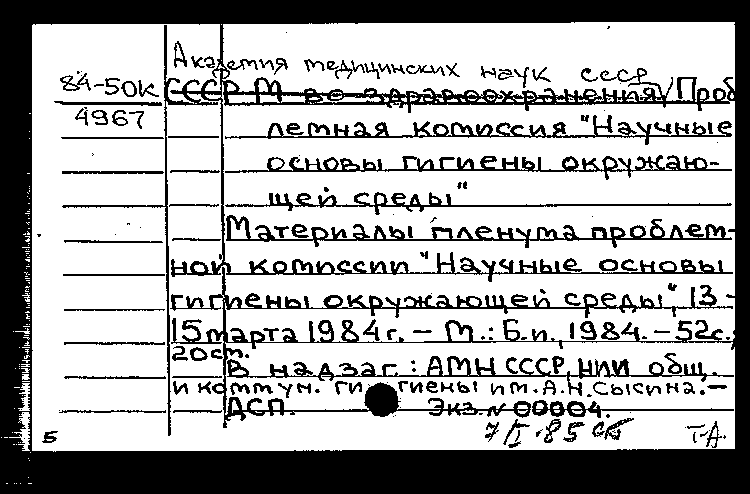 Академия медицинских наук СССР
84-50К СССР М-во здравоохранения/Проб
4967
лемная комиссия "Научные
основы гигиены окружаю-
щей среды"
Материалы пленума проблем-
ной комиссии "Научные основы
гигиены окружающей среды", 13-
15 марта 1984 г. - М.: Б.и., 1984. - 52 с.;
20 см.
В надзаг.: АМН СССР, НИИ общ.
и коммун. гигиены им. А.Н. Сысина. -
ДСП. Экз. N 00004.
7/I-85 сб Т-А.
5